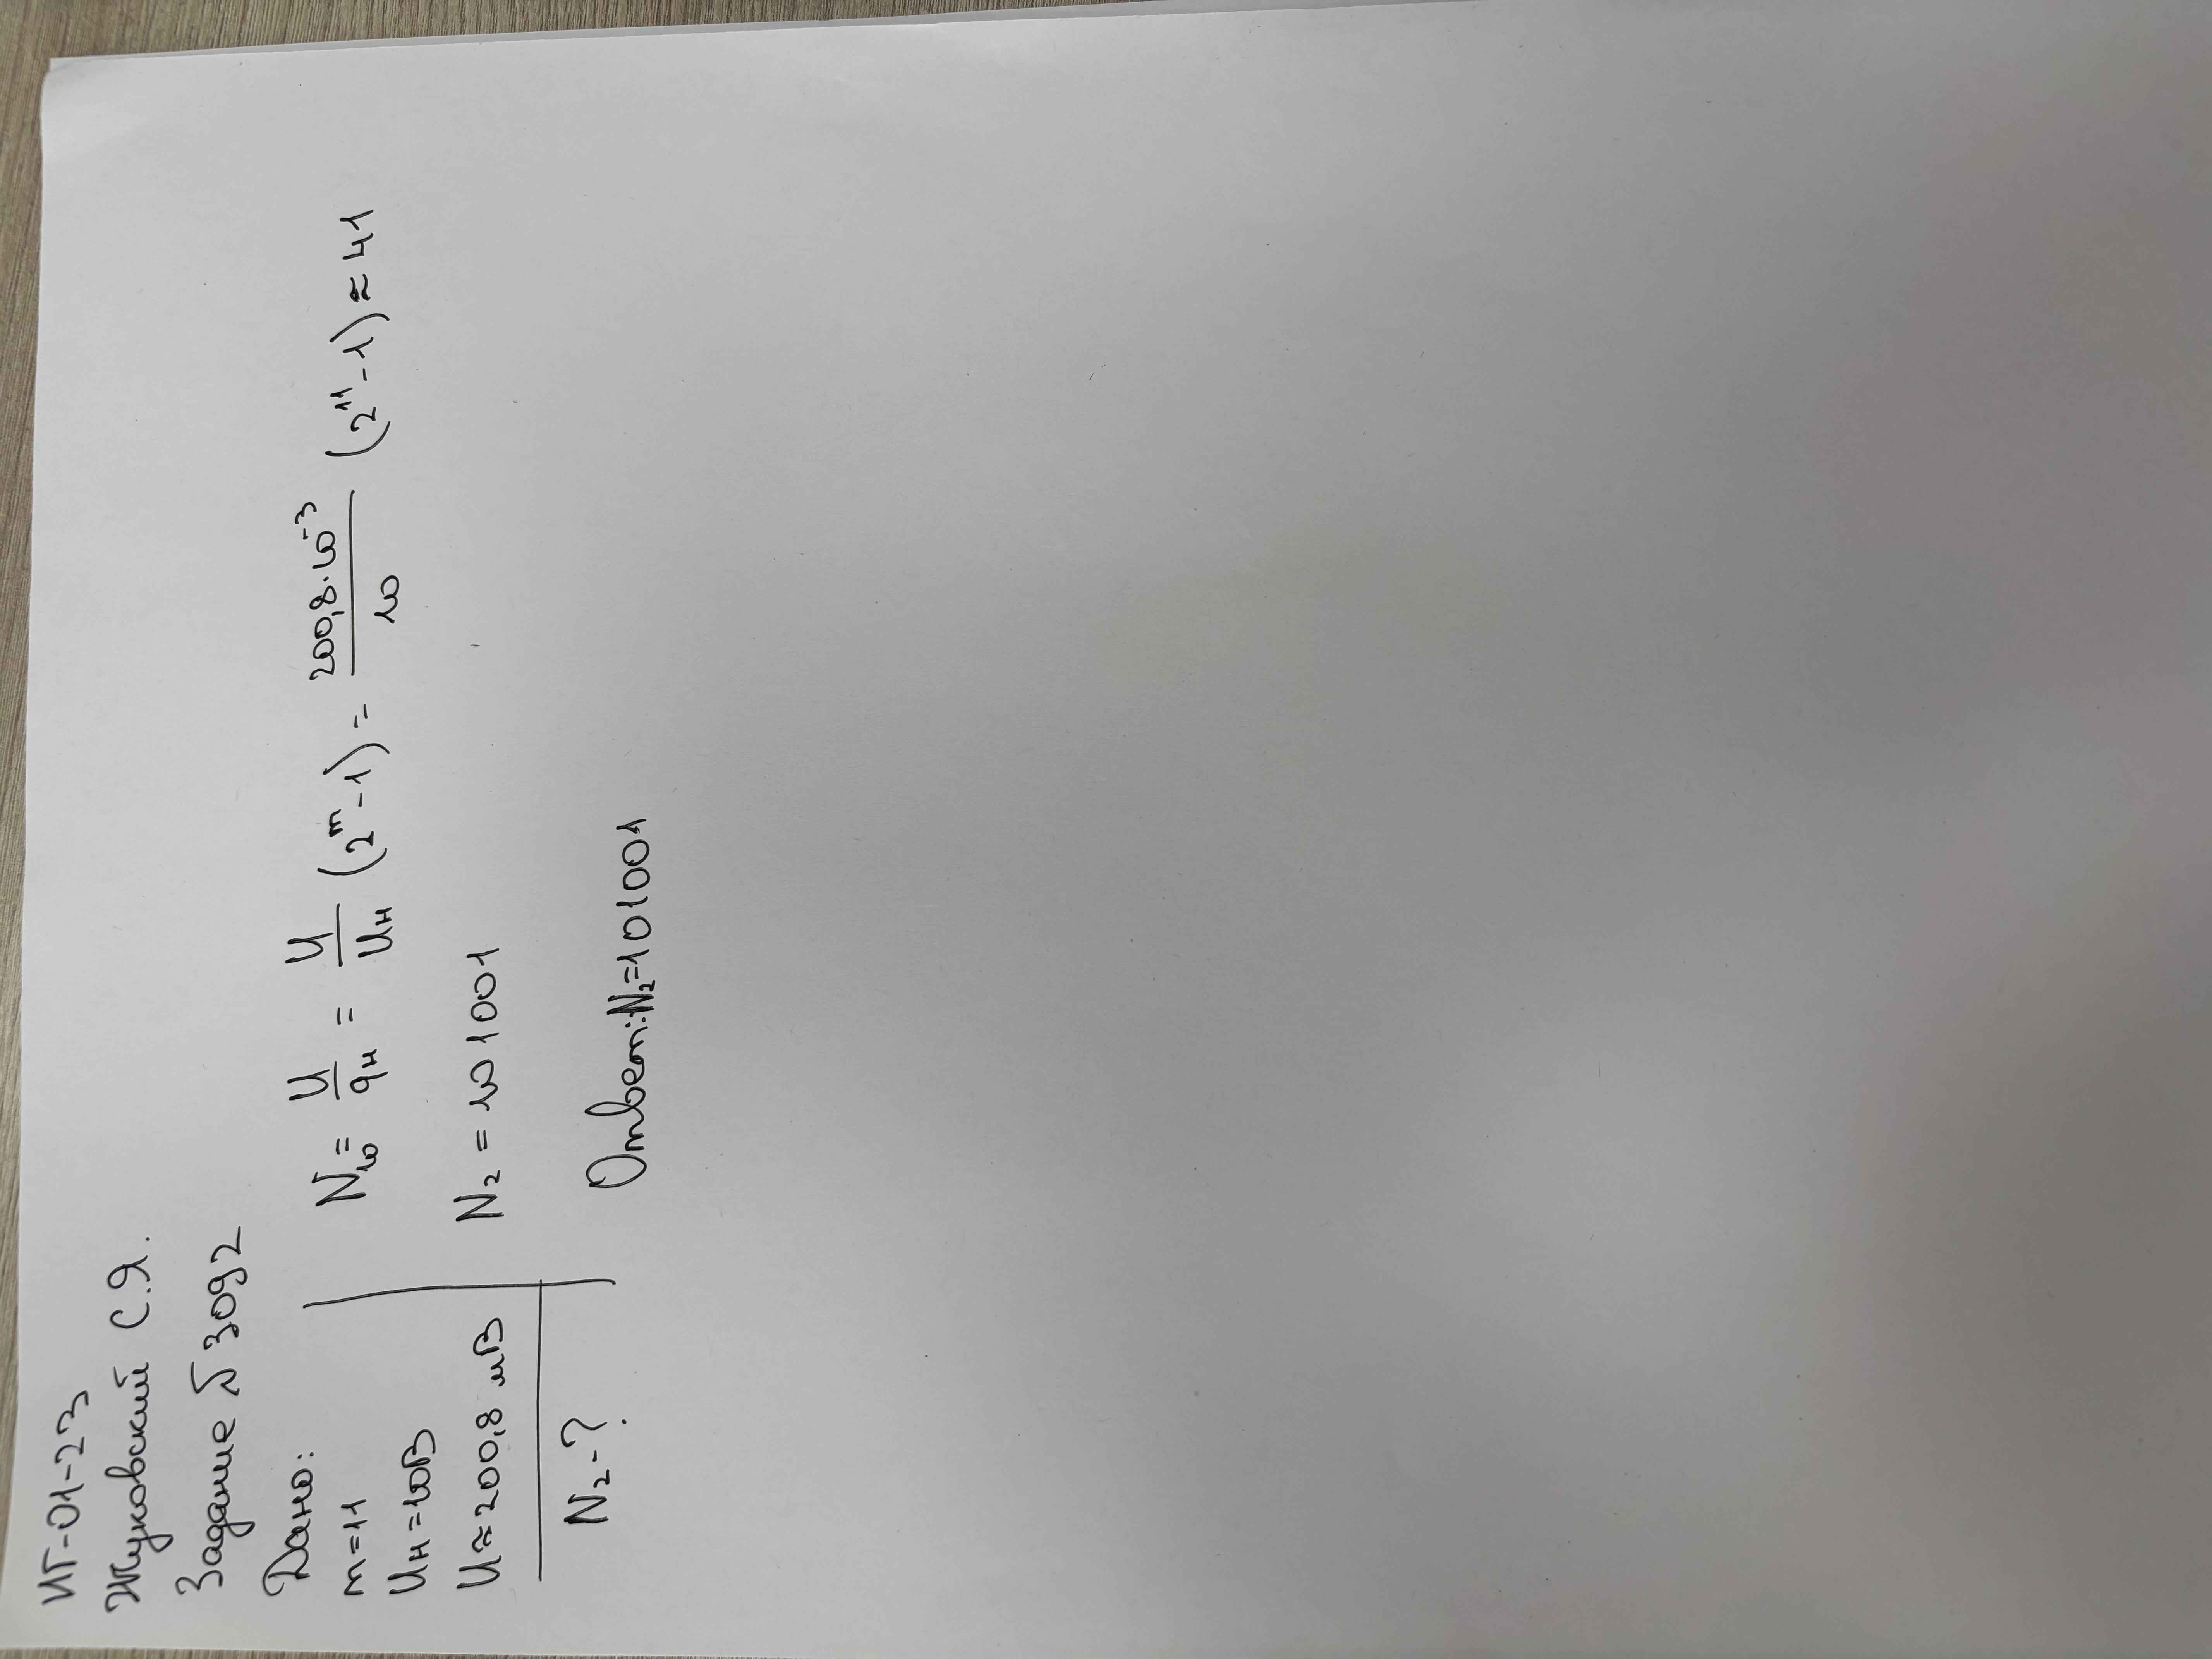 ИГ-01-23
Жуковский С.Я.
Задание № 3092
Дано:
m=11
Uн=10В
U≈200,8 мВ
N₂-?
N₁₀ = U/qн = U/Uн (2^m-1) = 200,8·10^-3/10 (2^11-1) ≈ 41
N₂ = 101001
Ответ: N₂=101001